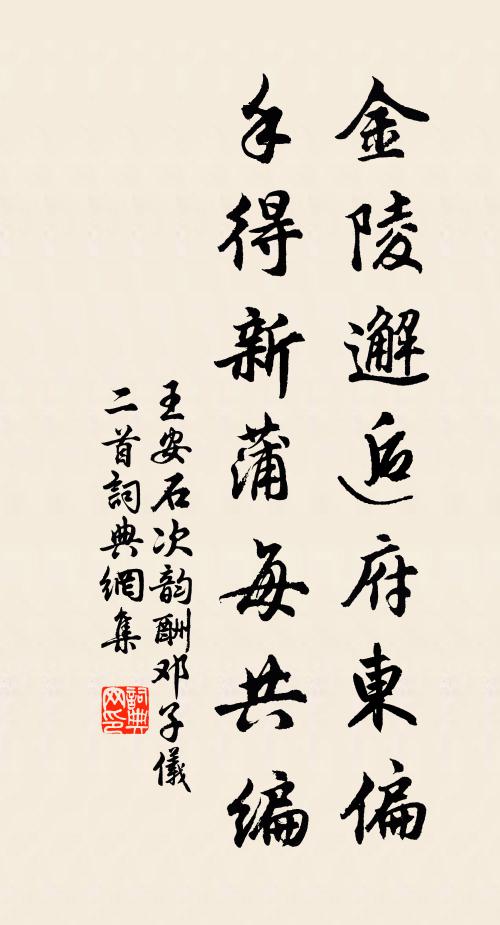 金陵邂逅府東偏
手得新蒲每共編
王安石次韵酬邓子儀
二首詞典網集
詞典网印